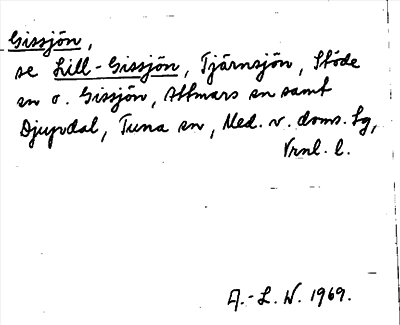 Gissjön,
se Lill-Gissjön, Tjärnsjön, Stöde
sn o. Gissjön, Attmars sn samt
Djupdal, Tuna sn, Med. v. doms. tg,
Vrnl. l.
A.-L. W. 1969.